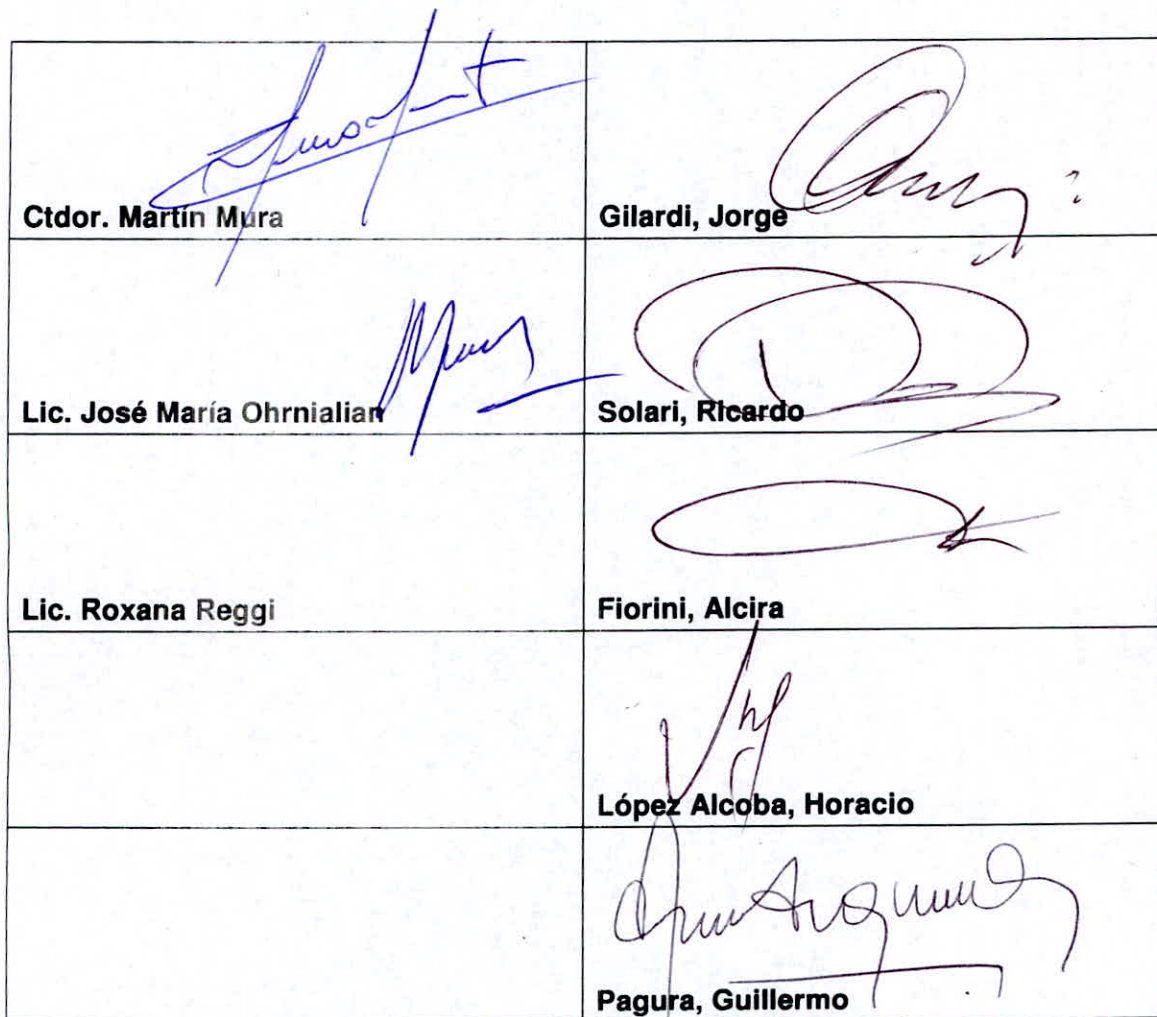 Ctdor. Martín Mura
Gilardi, Jorge
Lic. José María Ohrnialian
Solari, Ricardo
Lic. Roxana Reggi
Fiorini, Alcira
López Alcoba, Horacio
Pagura, Guillermo